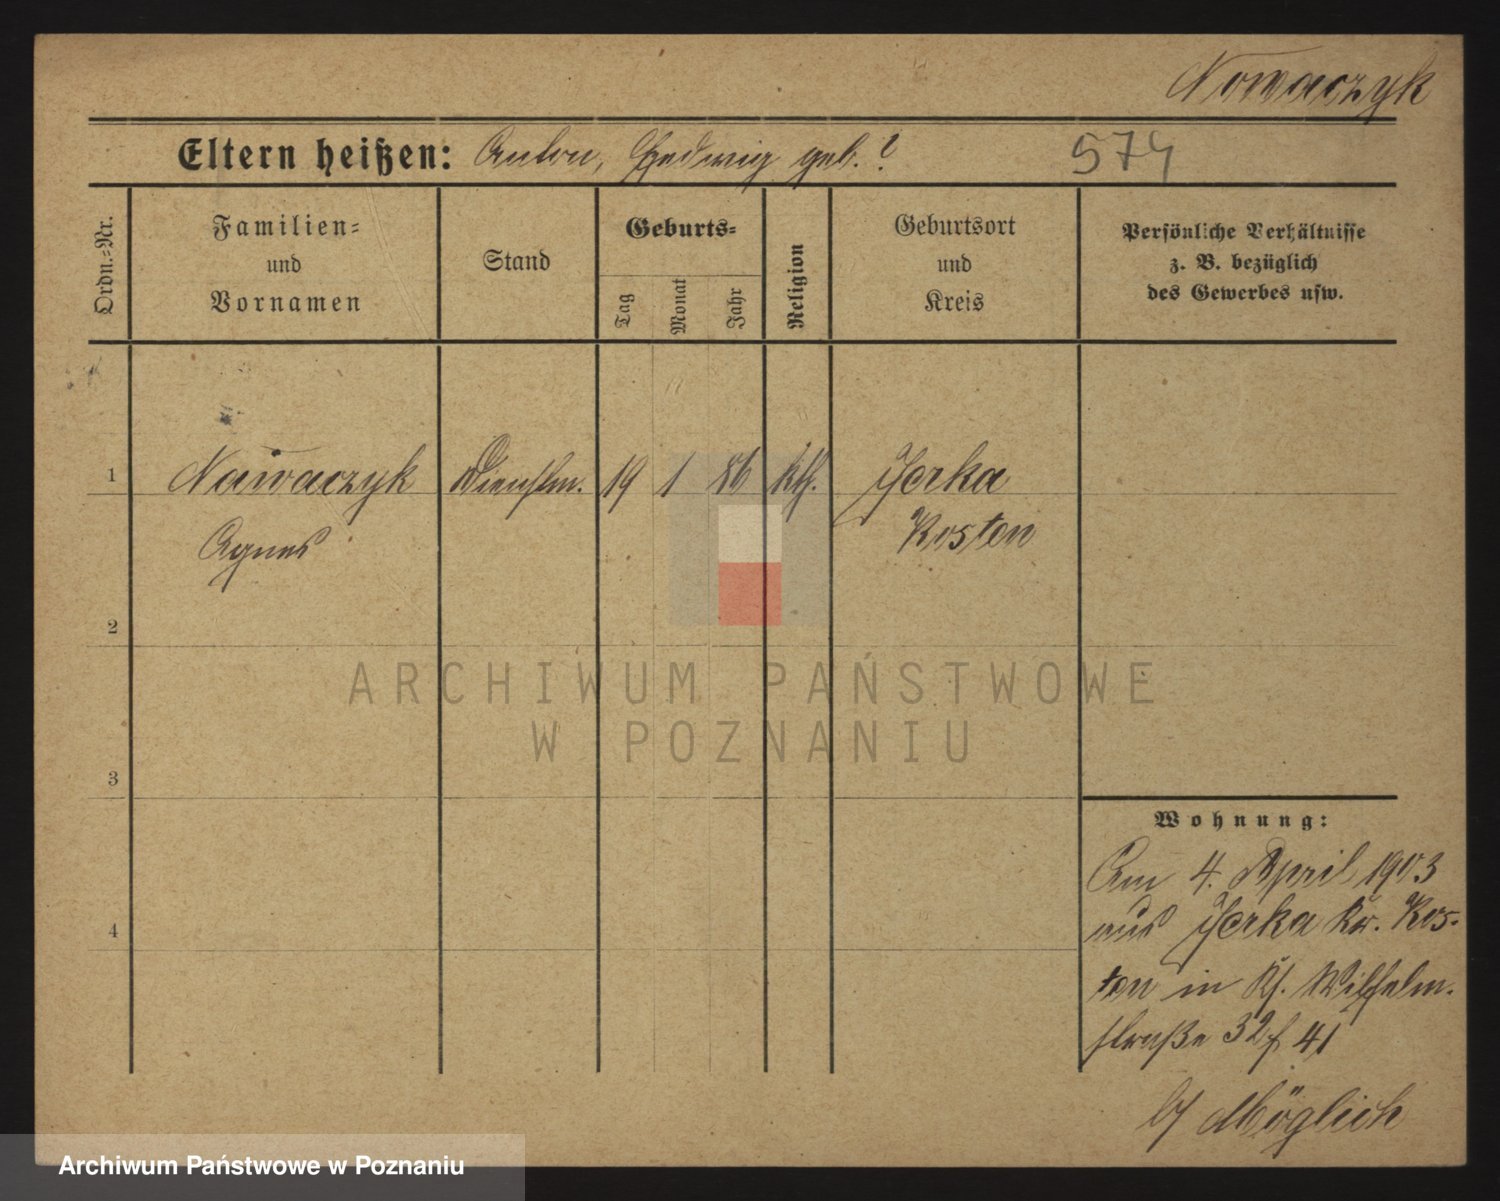 Nowaczyk
Eltern heißen: Anton, Hedwig geb. ?
574
Ordn.-Nr.
Familien-
und
Vornamen
Stand
Geburts-
Tag
Monat
Jahr
Religion
Geburtsort
und
Kreis
Persönliche Verhältnisse
z. B. bezüglich
des Gewerbes usw.
1 Nawaczyk Dienstm. 19 1 86 kth. Jerka
Agnes Kosten
2
3
4
Wohnung:
Am 4. April 1903
aus Jerka Kr. Kos-
ten in Wilhelm-
straße 32 41
b/ Möglich
ARCHIWUM PAŃSTWOWE
W POZNANIU
Archiwum Państwowe w Poznaniu